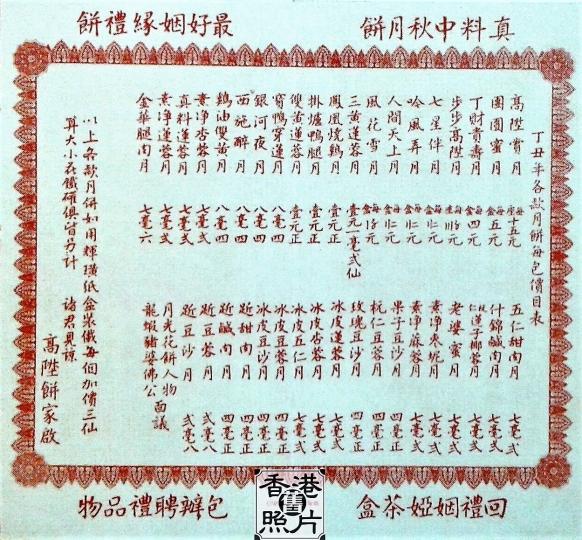 真料中秋月餅
最好姻緣禮餅
丁丑年各款月餅每包價目表
高陞賞月 每座十五元
團圓蜜月 每盒五元
丁財貴壽月 每盒四元
步步高陞月
七星伴月 每盒仁元
吟風弄月 每盒仁元
人間天上月 每盒仁元
風花雪月
三黃蓮蓉月 壹元一毫式仙
鳳凰燒鷄月 壹元正
掛爐鴨腿月 壹元正
雙黃蓮蓉月 壹元正
窩鴨穿蓮月 八毫四
銀河夜月 八毫四
西施醉月 八毫四
鷄油雙黃月 八毫四
素淨杏蓉月 七毫式
真料蓮蓉月 七毫式
素淨蓮蓉月 七毫式
金華腿肉月 七毫六
五仁甜肉月 七毫式
什錦鹹肉月 七毫式
杬仁漢子椰蓉月 七毫式
老婆蜜月 七毫式
素淨枣坭月 七毫式
素淨蔴蓉月 七毫式
果子豆沙月 四毫正
杬仁豆蓉月 四毫正
玫瑰豆沙月 四毫正
冰皮蓮蓉月 七毫式
冰皮杏蓉月 七毫式
冰皮五仁月 七毫式
冰皮豆沙月 四毫正
冰皮豆蓉月 四毫正
近甜肉月 四毫正
近鹹肉月 四毫正
近豆蓉月 式毫八
近豆沙月 式毫八
月光花餅人物
龍蝦豬婆佛公 面議
以上各款月餅如用輝璜紙盒裝儎每個加價三仙
算大小衣鐵確俱皆另計 諸君見諒
高陞餅家啟
回禮姻婭茶盒
包辦聘禮品物
香港
照片